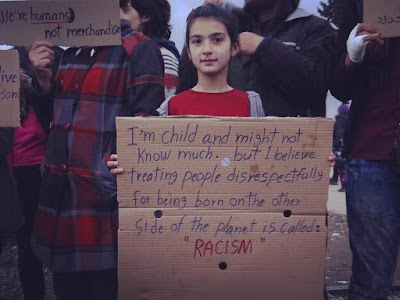 We're humans
not merchandise
I'm child and might not
know much. but I believe
treating people disrespectfully
for being born on the other
side of the planet is called:
"RACISM"